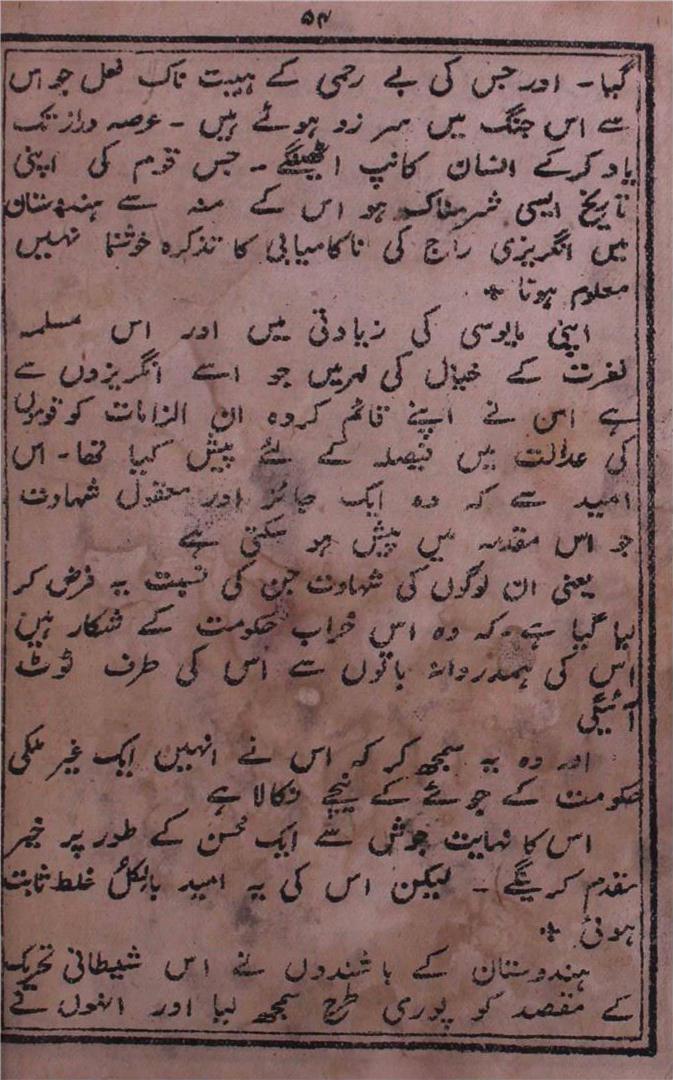 ۵۴
گیا - اور جس کی بے رحمی کے ہیبت ناک فعل جو اس
سے اس جنگ میں سرزد ہوئے ہیں - عرصہ دراز تک
یاد کرکے انسان کانپ اٹھینگے - جس قوم کی اپنی
تاریخ ایسی شرمناک ہو اس کے منہ سے ہندوستان
میں انگریزی راج کی ناکامیابی کا تذکرہ خوشنما نہیں
معلوم ہوتا +
اپنی مایوسی کی زیادتی میں اور اس مسلمہ
نفرت کے خیال کی لہر میں جو اسے انگریزوں سے
ہے اس نے اپنے قائم کردہ ان الزامات کو قوموں
کی عدالت میں فیصلہ کے لئے پیش کیا تھا - اس
امید سے کہ وہ ایک جائز اور معقول شہادت
جو اس مقدمہ میں پیش ہو سکتی ہے
یعنی ان لوگوں کی شہادت جن کی نسبت یہ فرض کر
لیا گیا ہے - کہ وہ اس خراب حکومت کے شکار ہیں
اس کی ہمدردانہ باتوں سے اس کی طرف ٹوٹ
آئیگی
اور وہ یہ سمجھ کر کہ اس نے انہیں ایک غیر ملکی
حکومت کے جوئے کے نیچے نکالا ہے
اس کا نہایت جوش سے ایک محسن کے طور پر خیر
مقدم کرینگے - لیکن اس کی یہ امید بالکل غلط ثابت
ہوئی +
ہندوستان کے باشندوں نے اس شیطانی تحریک
کے مقصد کو پوری طرح سمجھ لیا اور انہوں نے